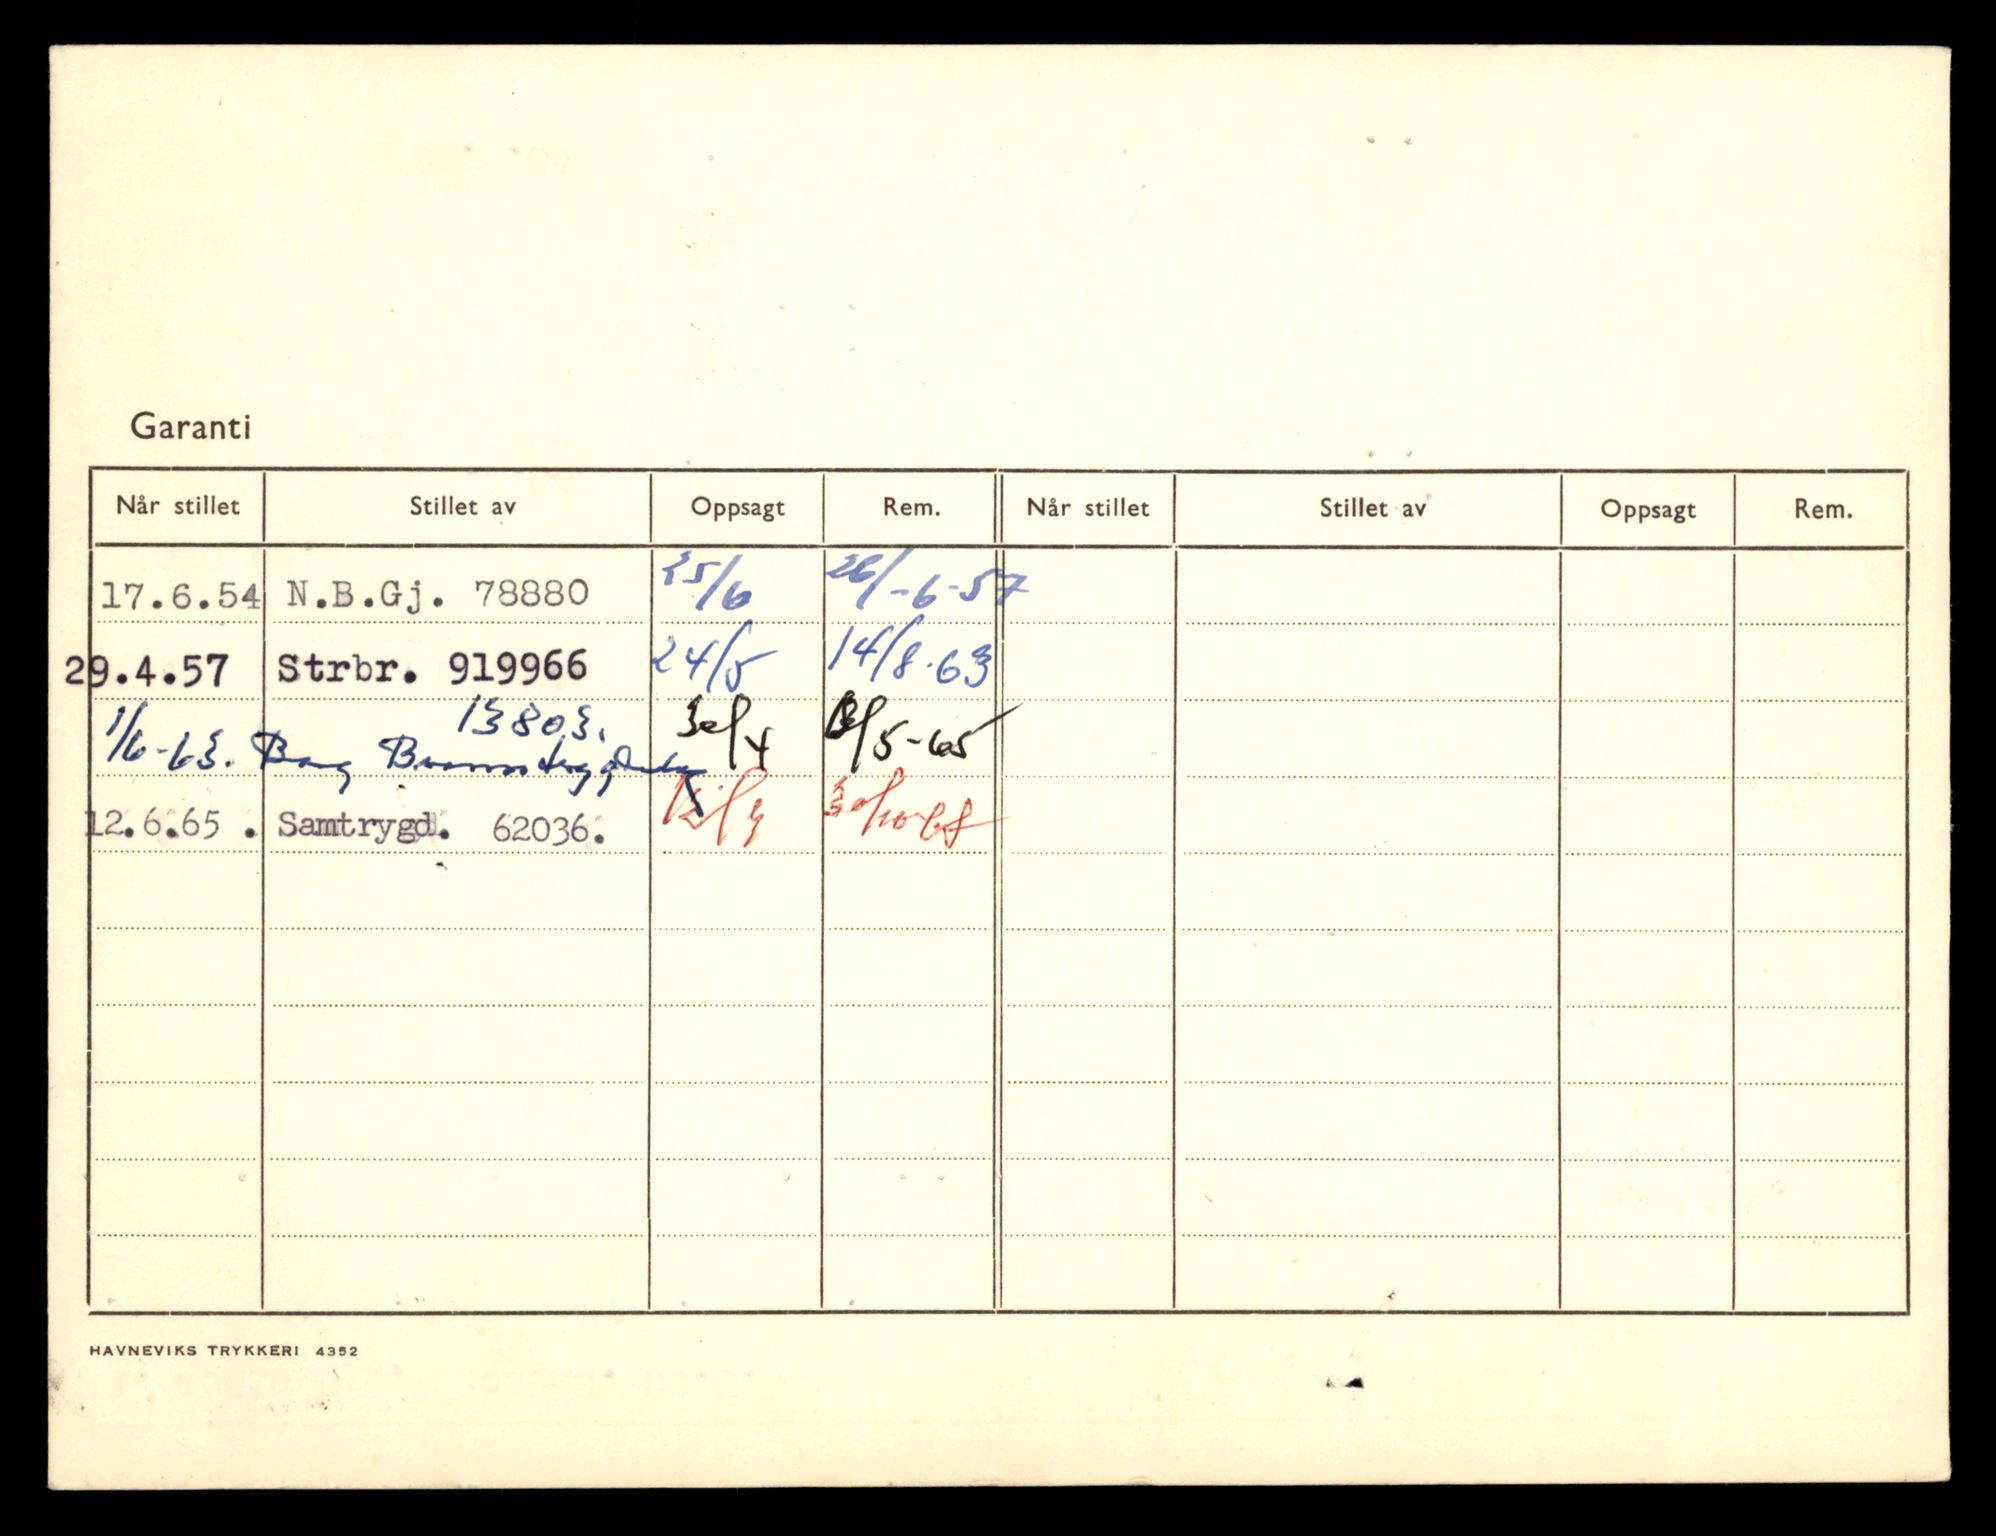 Garanti
Når stillet Stillet av Oppsagt Rem. Når stillet Stillet av Oppsagt Rem.
17.6.54 N.B.Gj. 78880 25/6 26/-6-57
29.4.57 Strbr. 919966 24/5 14/8-63
13803.
1/6-63. 30/4 /5-65
12.6.65 . Samtrygd. 62036. 30/10-68
HAVNEVIKS TRYKKERI 4352